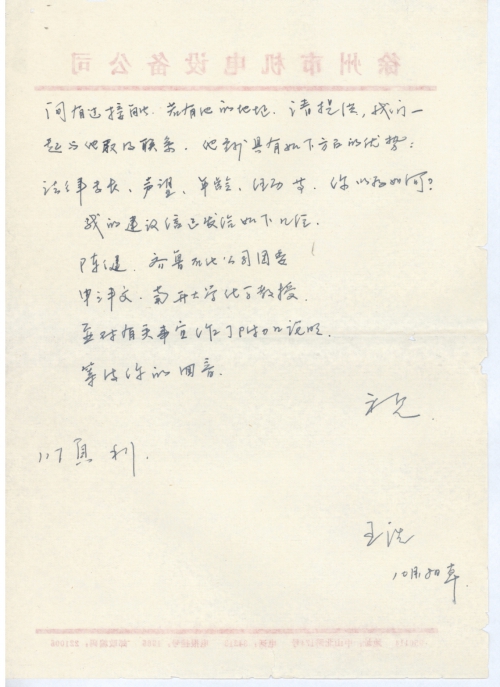 徐州市机电设备公司
问有过接触. 若有他的地址. 请提供, 我们一
起与他取得联系. 他 具有如下方面的优势:
、声望、年龄、活动等. 你以为如何?
我的建议信已发给如下几位.
陈健. 齐鲁石化公司团委
申泮文. 南开大学化学教授.
并对有关事宜作了 说明.
等待你的回音.
祝
顺利.
王洪
10月 草